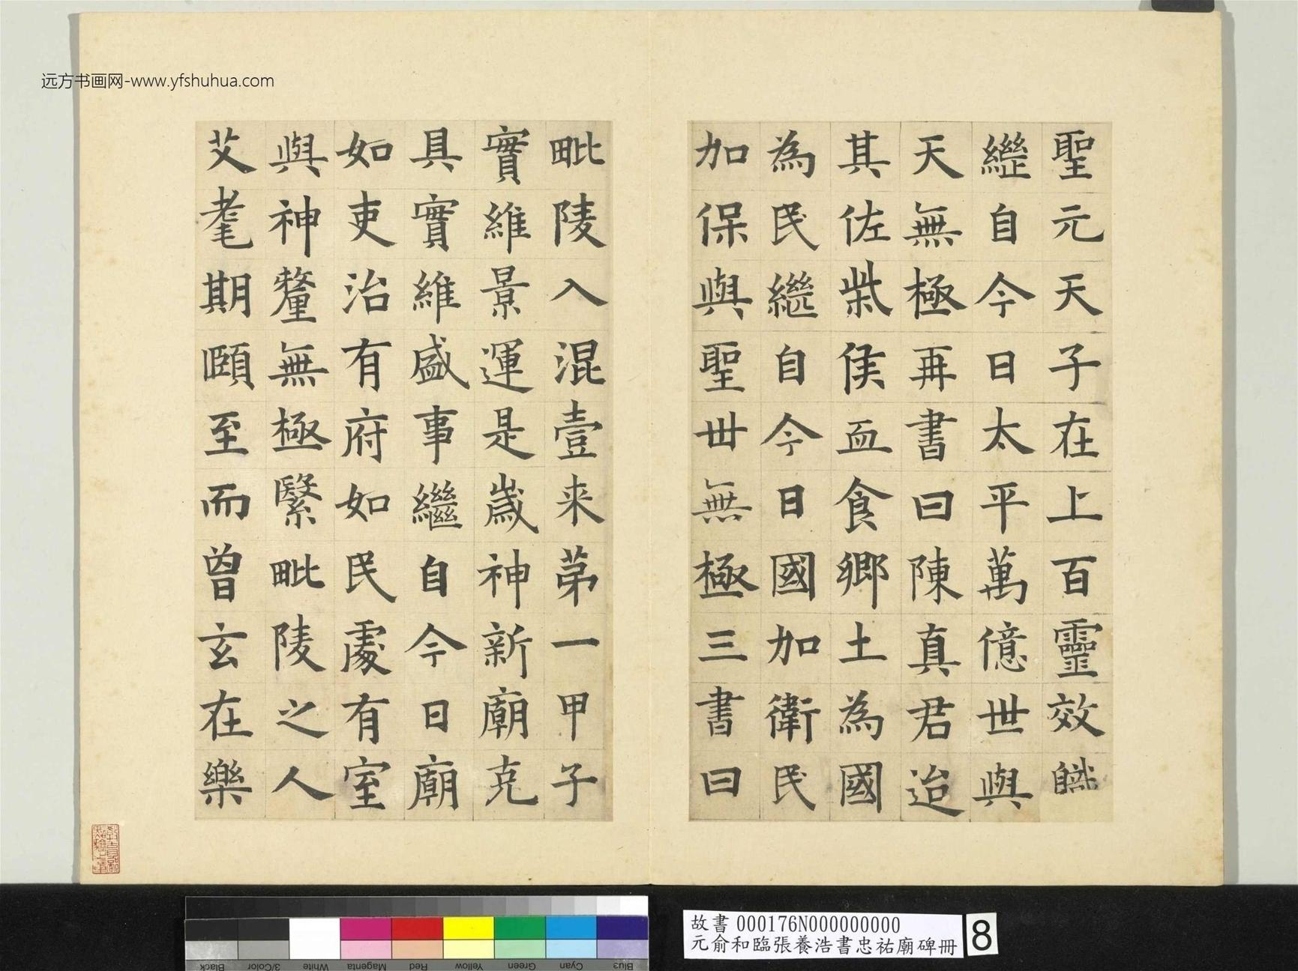 远方书画网-www.yfshuhua.com
聖元天子在上百靈效職
繼自今日太平萬億世與
天無極再書曰陳真君迨
其佐柴侯血食鄉土為國
為民繼自今日國加衛民
加保與聖世無極三書曰
毗陵入混壹来苐一甲子
實維景運是嵗神新廟克
具實維盛事繼自今日廟
如吏治有府如民處有室
與神釐無極繄毗陵之人
艾耄期頤至而曾玄在樂
故書 000176N000000000
元俞和臨張養浩書忠祐廟碑冊
8
Black
3/Color
White
Magenta
Red
Yellow
Green
Cyan
Blue